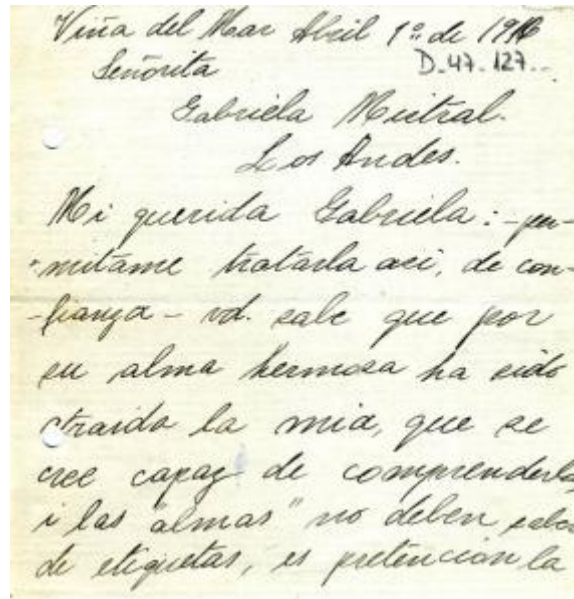 Viña del Mar Abril 1º de 1916
Señorita
D.47.127.-
Gabriela Mistral.
Los Andes.
Mi querida Gabriela: - per-
mitame tratarla asi, de con-
-fianza - vd. sabe que por
su alma hermosa ha sido
atraida la mia, que se
cree capaz de comprenderla
i las "almas" no deben saber
de etiquetas, es pretencion la